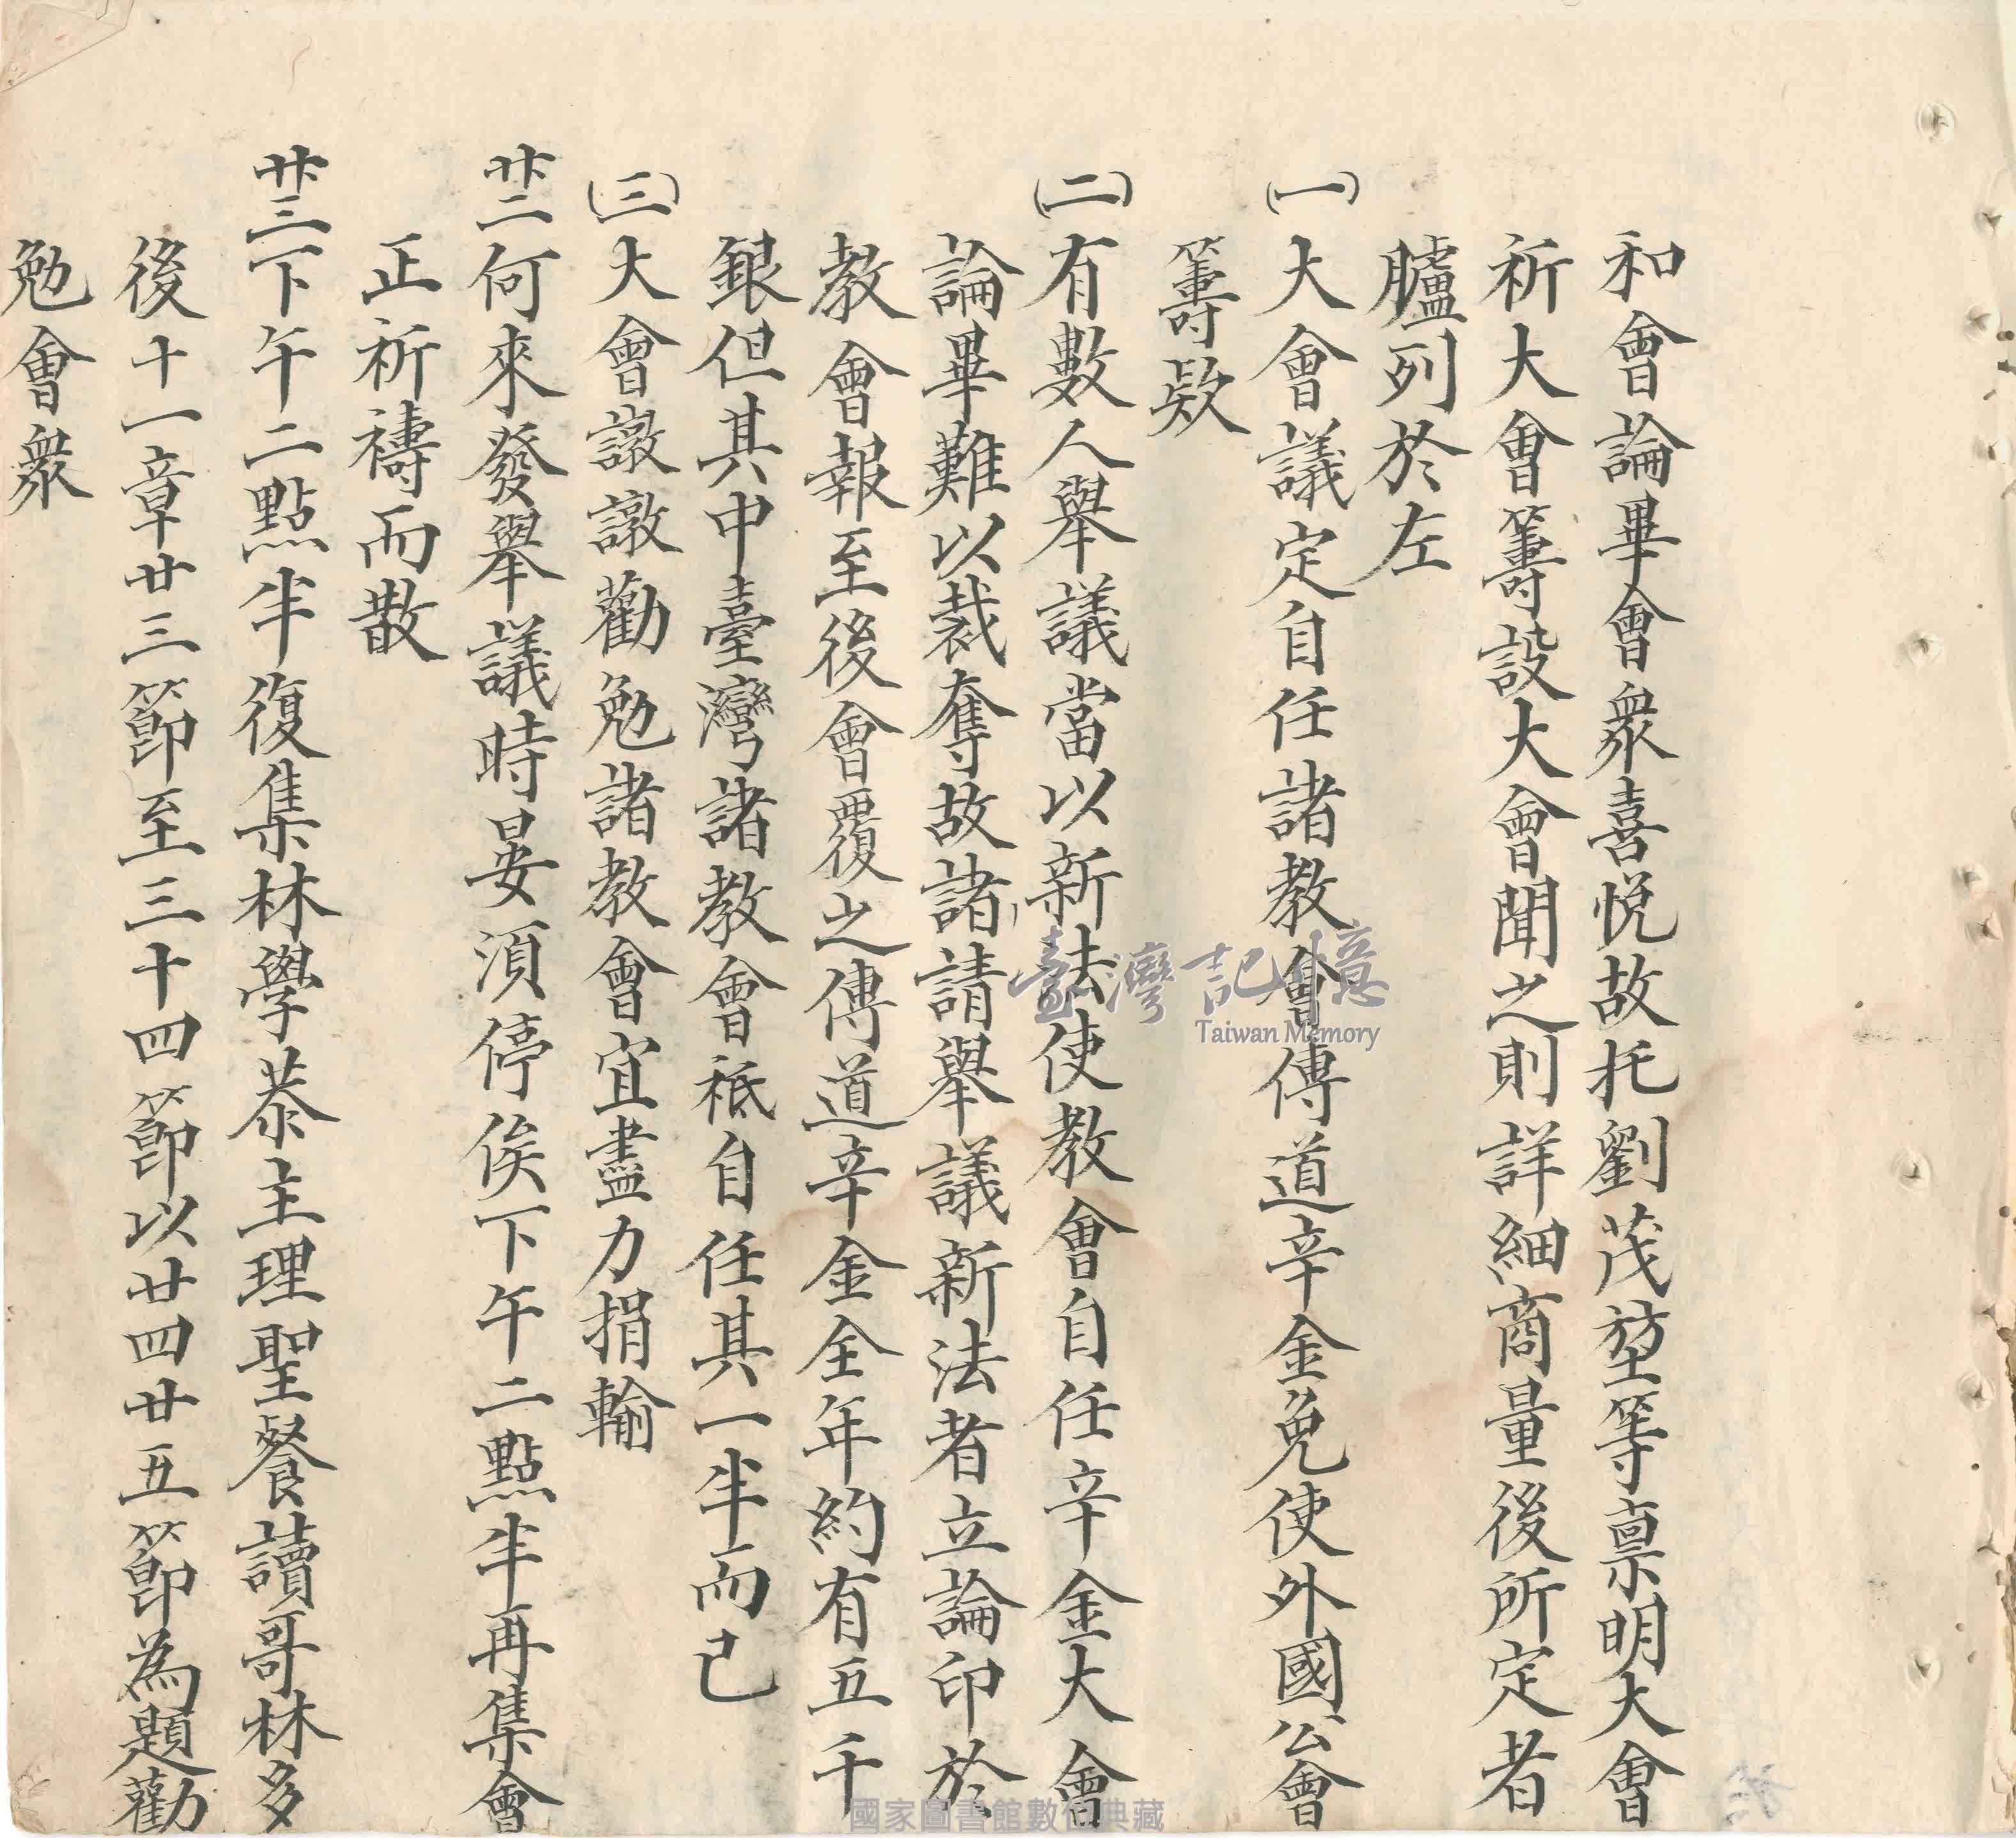 和會論畢會衆喜悅故托劉茂堃等禀明大會
祈大會籌設大會聞之則詳細商量後所定者
臚列於左
㈠大會議定自任諸教會傳道辛金免使外國公會
籌欵
㈡有數人舉議當以新法使教會自任辛金大會
論畢難以裁奪故諸請舉議新法者立論印於
教會報至後會覆之傳道辛金全年約有五千
銀但其中臺灣諸教會祗自任其一半而已
㈢大會譈譈勸勉諸教會宜盡力捐輸
廿二何來發舉議時晏須停俟下午二點半再集會
正祈禱而散
廿三下午二點半復集林學恭主理聖餐讀哥林多
後十一章廿三節至三十四節以廿四廿五節為題勸
勉會衆
臺灣記憶
Taiwan Memory
國家圖書館數位典藏